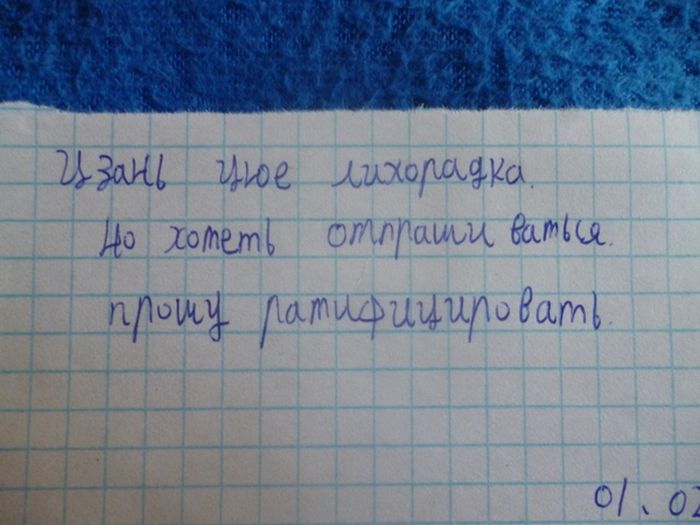 Цзань цюе лихорадка.
но хотеть отпрашиваться.
прошу ратифицировать.
01.0